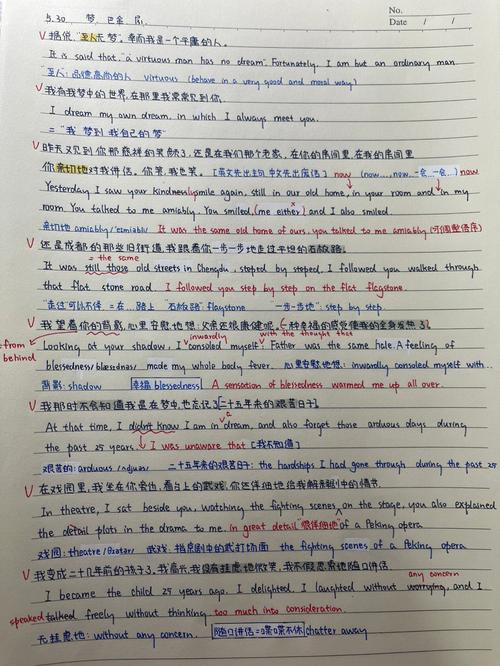 No.
Date / /
5.30 梦 巴金
V 据说"至人无梦"。幸而我是一个平庸的人。
It is said that "a virtuous man has no dream". Fortunately, I am but an ordinary man.
至人：品德高尚的人 virtuous (behave in a very good and moral way)
V 我有我梦中的世界，在那里我常常见到你。
I dream my own dream, in which I always meet you.
= "我 梦到 我自己的梦"
V 昨天又见到你那慈祥的笑颜了，还是在我们那个老家，在你的房间里，在我的房间里
你亲切地对我讲话。你笑，我也笑。
now (now..., now... 一会...一会...) now
Yesterday I saw your kindness smile again, still in our old home, in your room and in my
room. You talked to me amiably. You smiled, (me either) and I also smiled.
亲切地 amiably It was the same old home of ours, you talked to me amiably
V 还是成都的那些旧街道，我跟着你一步一步地走过平坦的石板路。
= the same
It was still those old streets in Chengdu, stepped by stepped, I followed you walked through
that flat stone road. I followed you step by step on the flat flagstone.
"走过"可以不译 = 在...路上 "石板路" flagstone "一步一步地" : step by step
V 我望着你的背影，心里安慰地想：父亲还很康健呢。一种幸福的感觉使我的全身发热了。
inwardly with the thought that
from behind
Looking at your shadow, I consoled myself: Father was the same hale. A feeling of
blessedness made my whole body fever. 心里安慰地想: inwardly consoled myself with...
背影: shadow 幸福 blessedness A sensation of blessedness warmed me up all over.
V 我那时不会知道我是在梦中，也忘记了二十五年来的艰苦日子。
a
At that time, I didn't know I am in dream, and also forget those arduous days during
the past 25 years. I was unaware that [我不知道]
艰苦的: arduous 二十五年来的艰苦日子: the hardships I had gone through during the past 25
V 在戏园里，我坐在你旁边，看台上的武戏，你还详细地给我解释剧中的情节。
In theatre, I sat beside you, watching the fighting scenes on the stage, you also explained
the detail plots in the drama to me. in great detail "很详细地" of a Peking opera
戏园: theatre 武戏: 指京剧中的武打场面 the fighting scenes of a Peking opera
V 我变成二十几年前的孩子了。我高兴，我没有挂虑地微笑，我不假思索地随口讲话
any concern
I became the child 25 years ago. I delighted, I laughted without worrying, and I
speaked talked freely without thinking too much into consideration.
无挂虑地: without any concern. 随口讲话=喋喋不休 chatter away